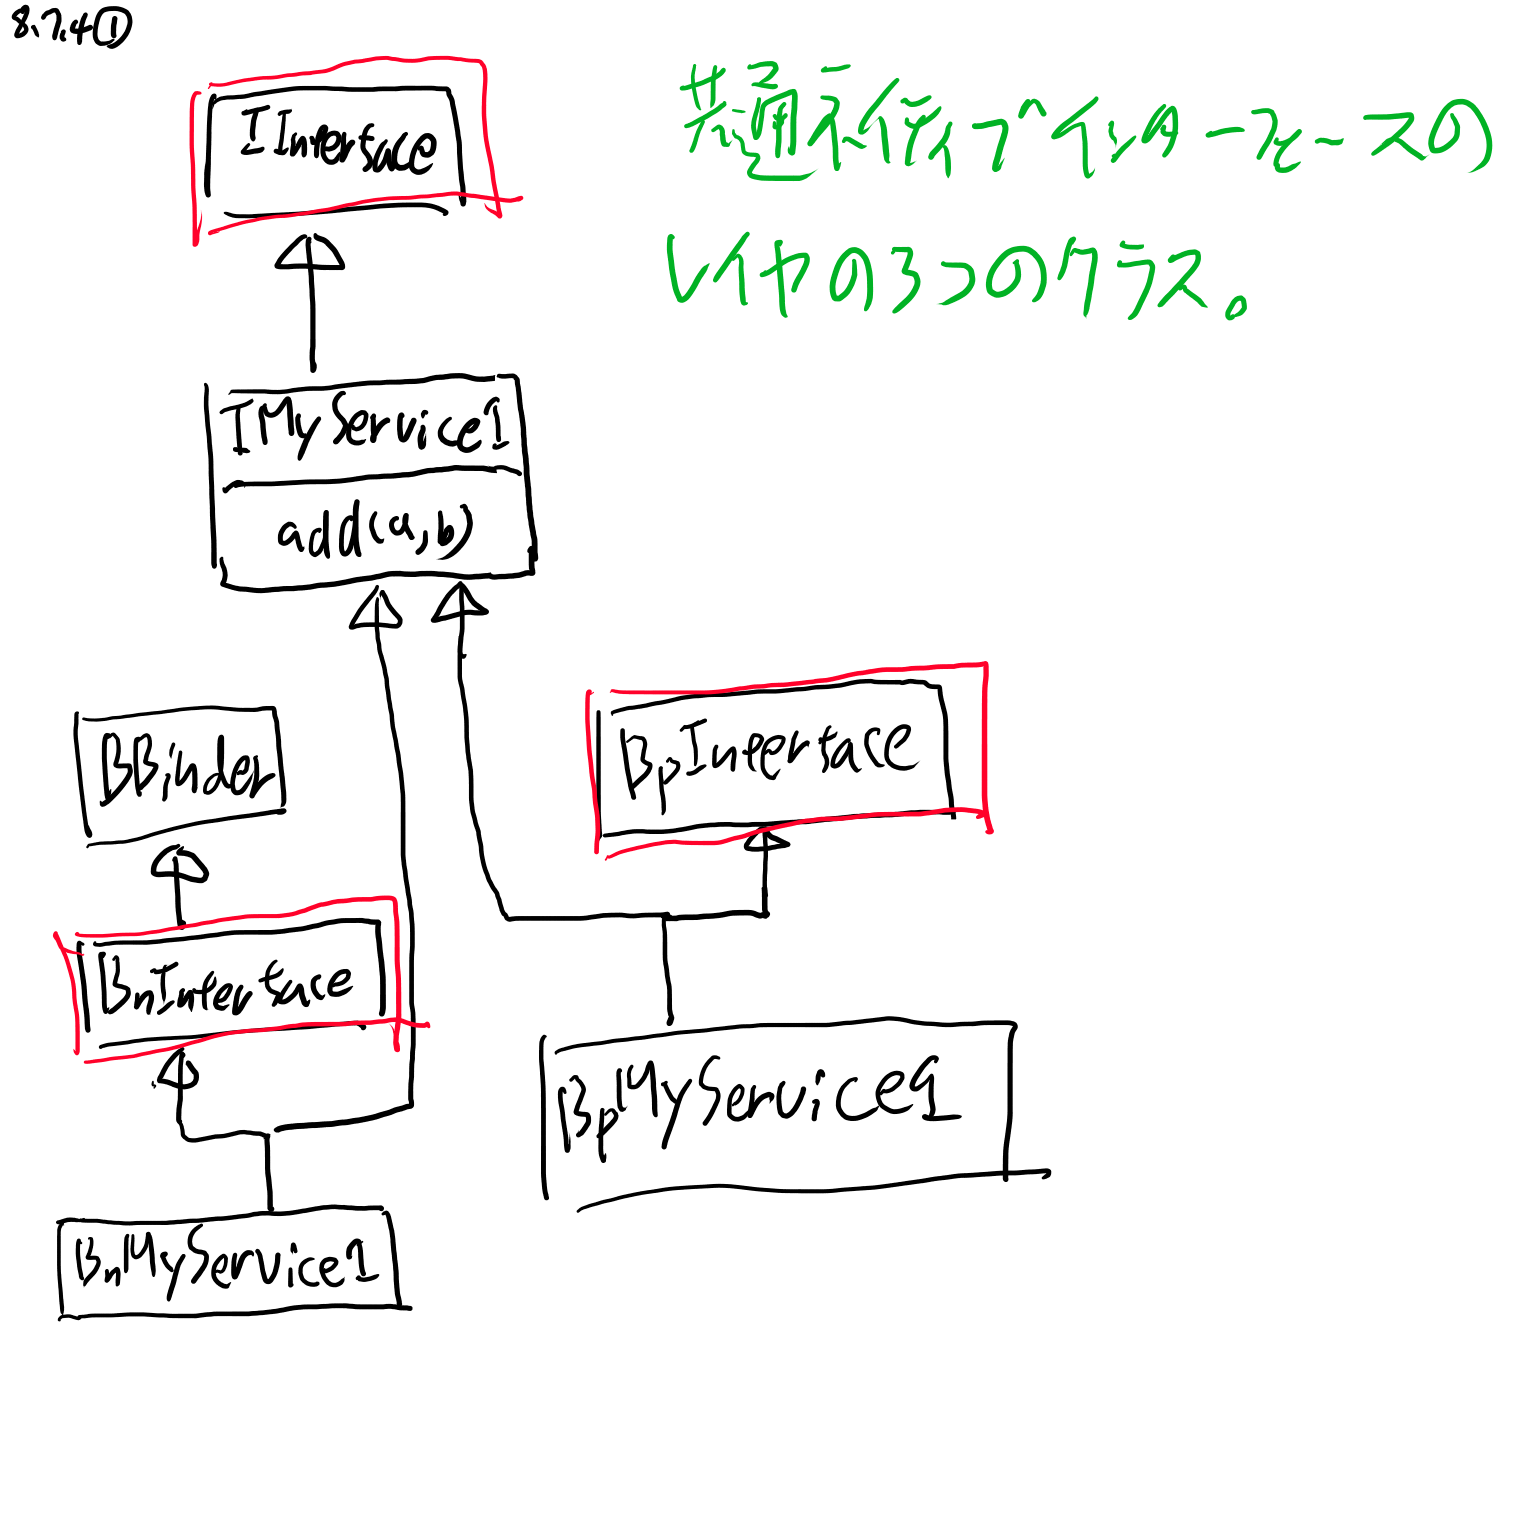 8.7.4①
IInterface
共通ネイティブインターフェースの
レイヤの3つのクラス。
IMyService1
add(a,b)
BBinder
BpInterface
BnInterface
BpMyService1
BnMyService1